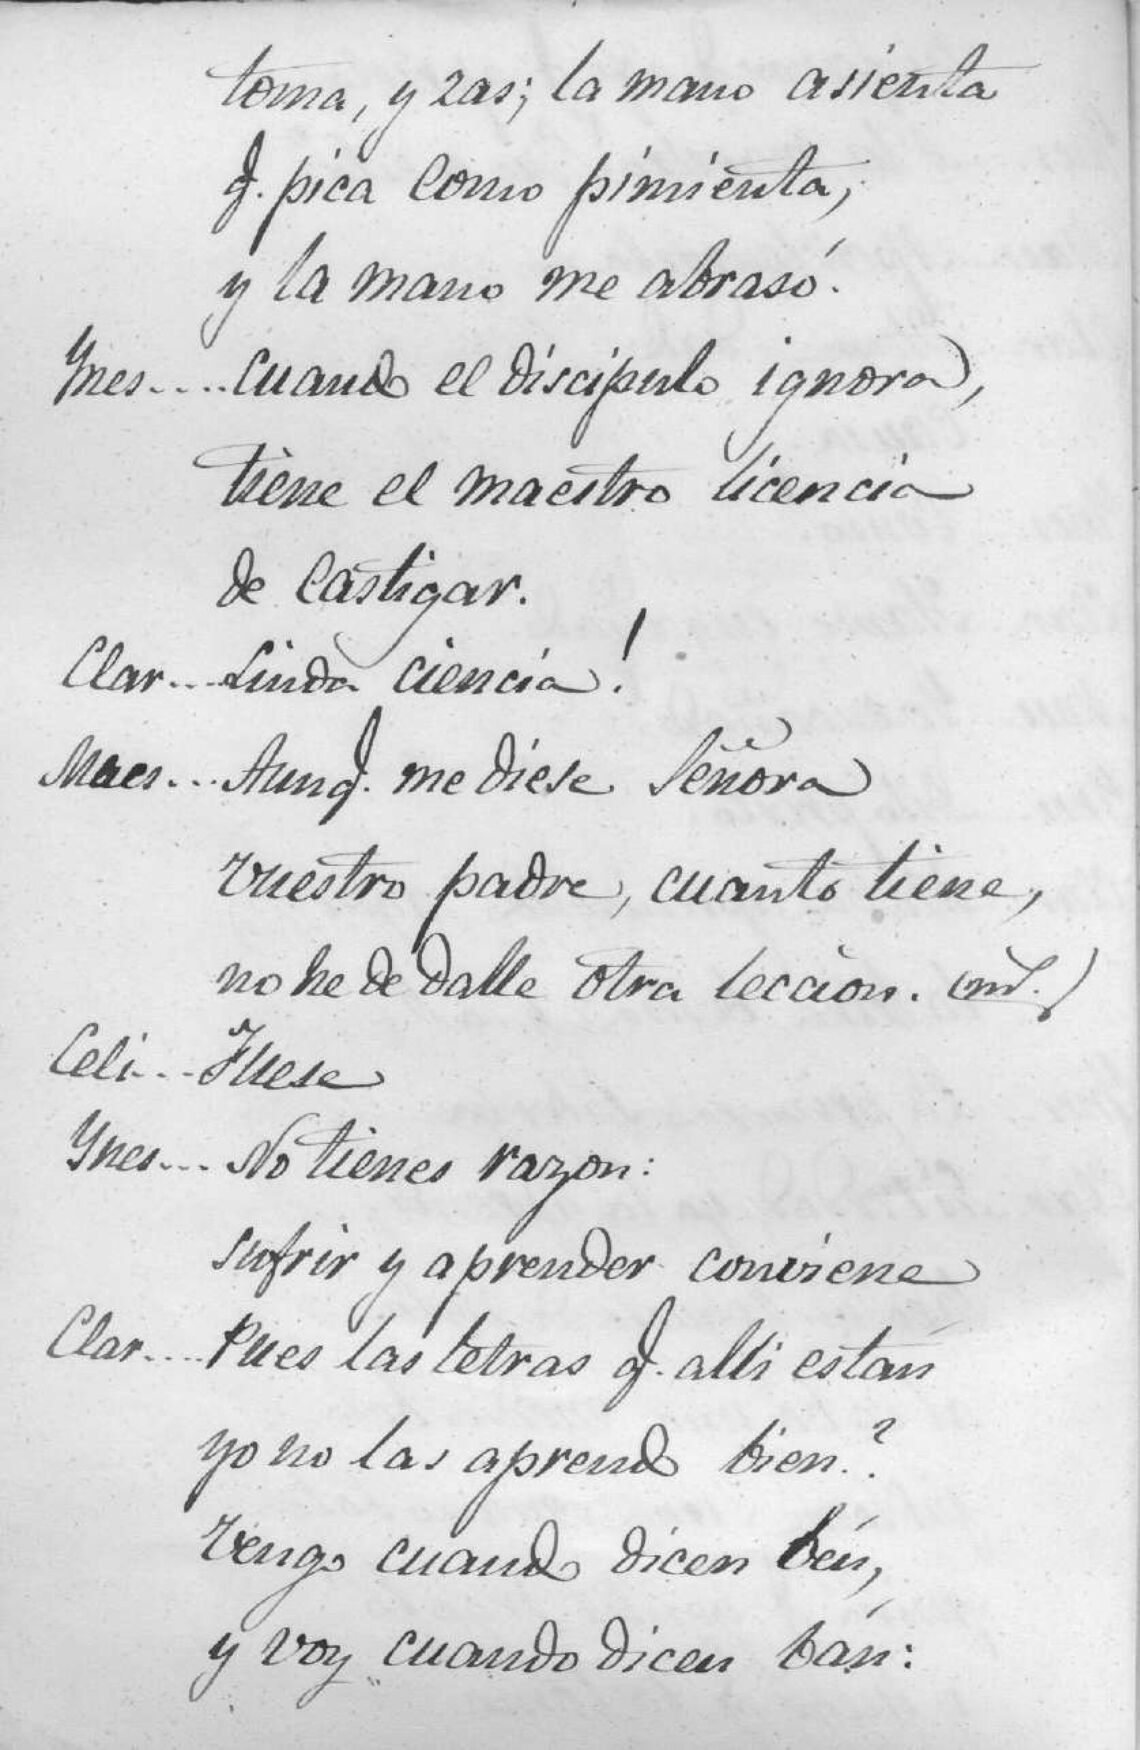 toma, y zas; la mano asienta
q. pica como pimienta,
y la mano me abrasó.
Ynes.... Cuando el discipulo ignora,
tiene el maestro licencia
de castigar.
Clar... Linda ciencia!
Maes... Aunq. me diese Señora
vuestro padre, cuanto tiene,
no he de dalle otra leccion.
Celi... Fuese
Ynes... No tienes razon:
sufrir y aprender conviene
Clar.... Pues las letras q. alli están
yo no las aprendo bien?
Vengo cuando dicen bén,
y voy cuando dicen bán: